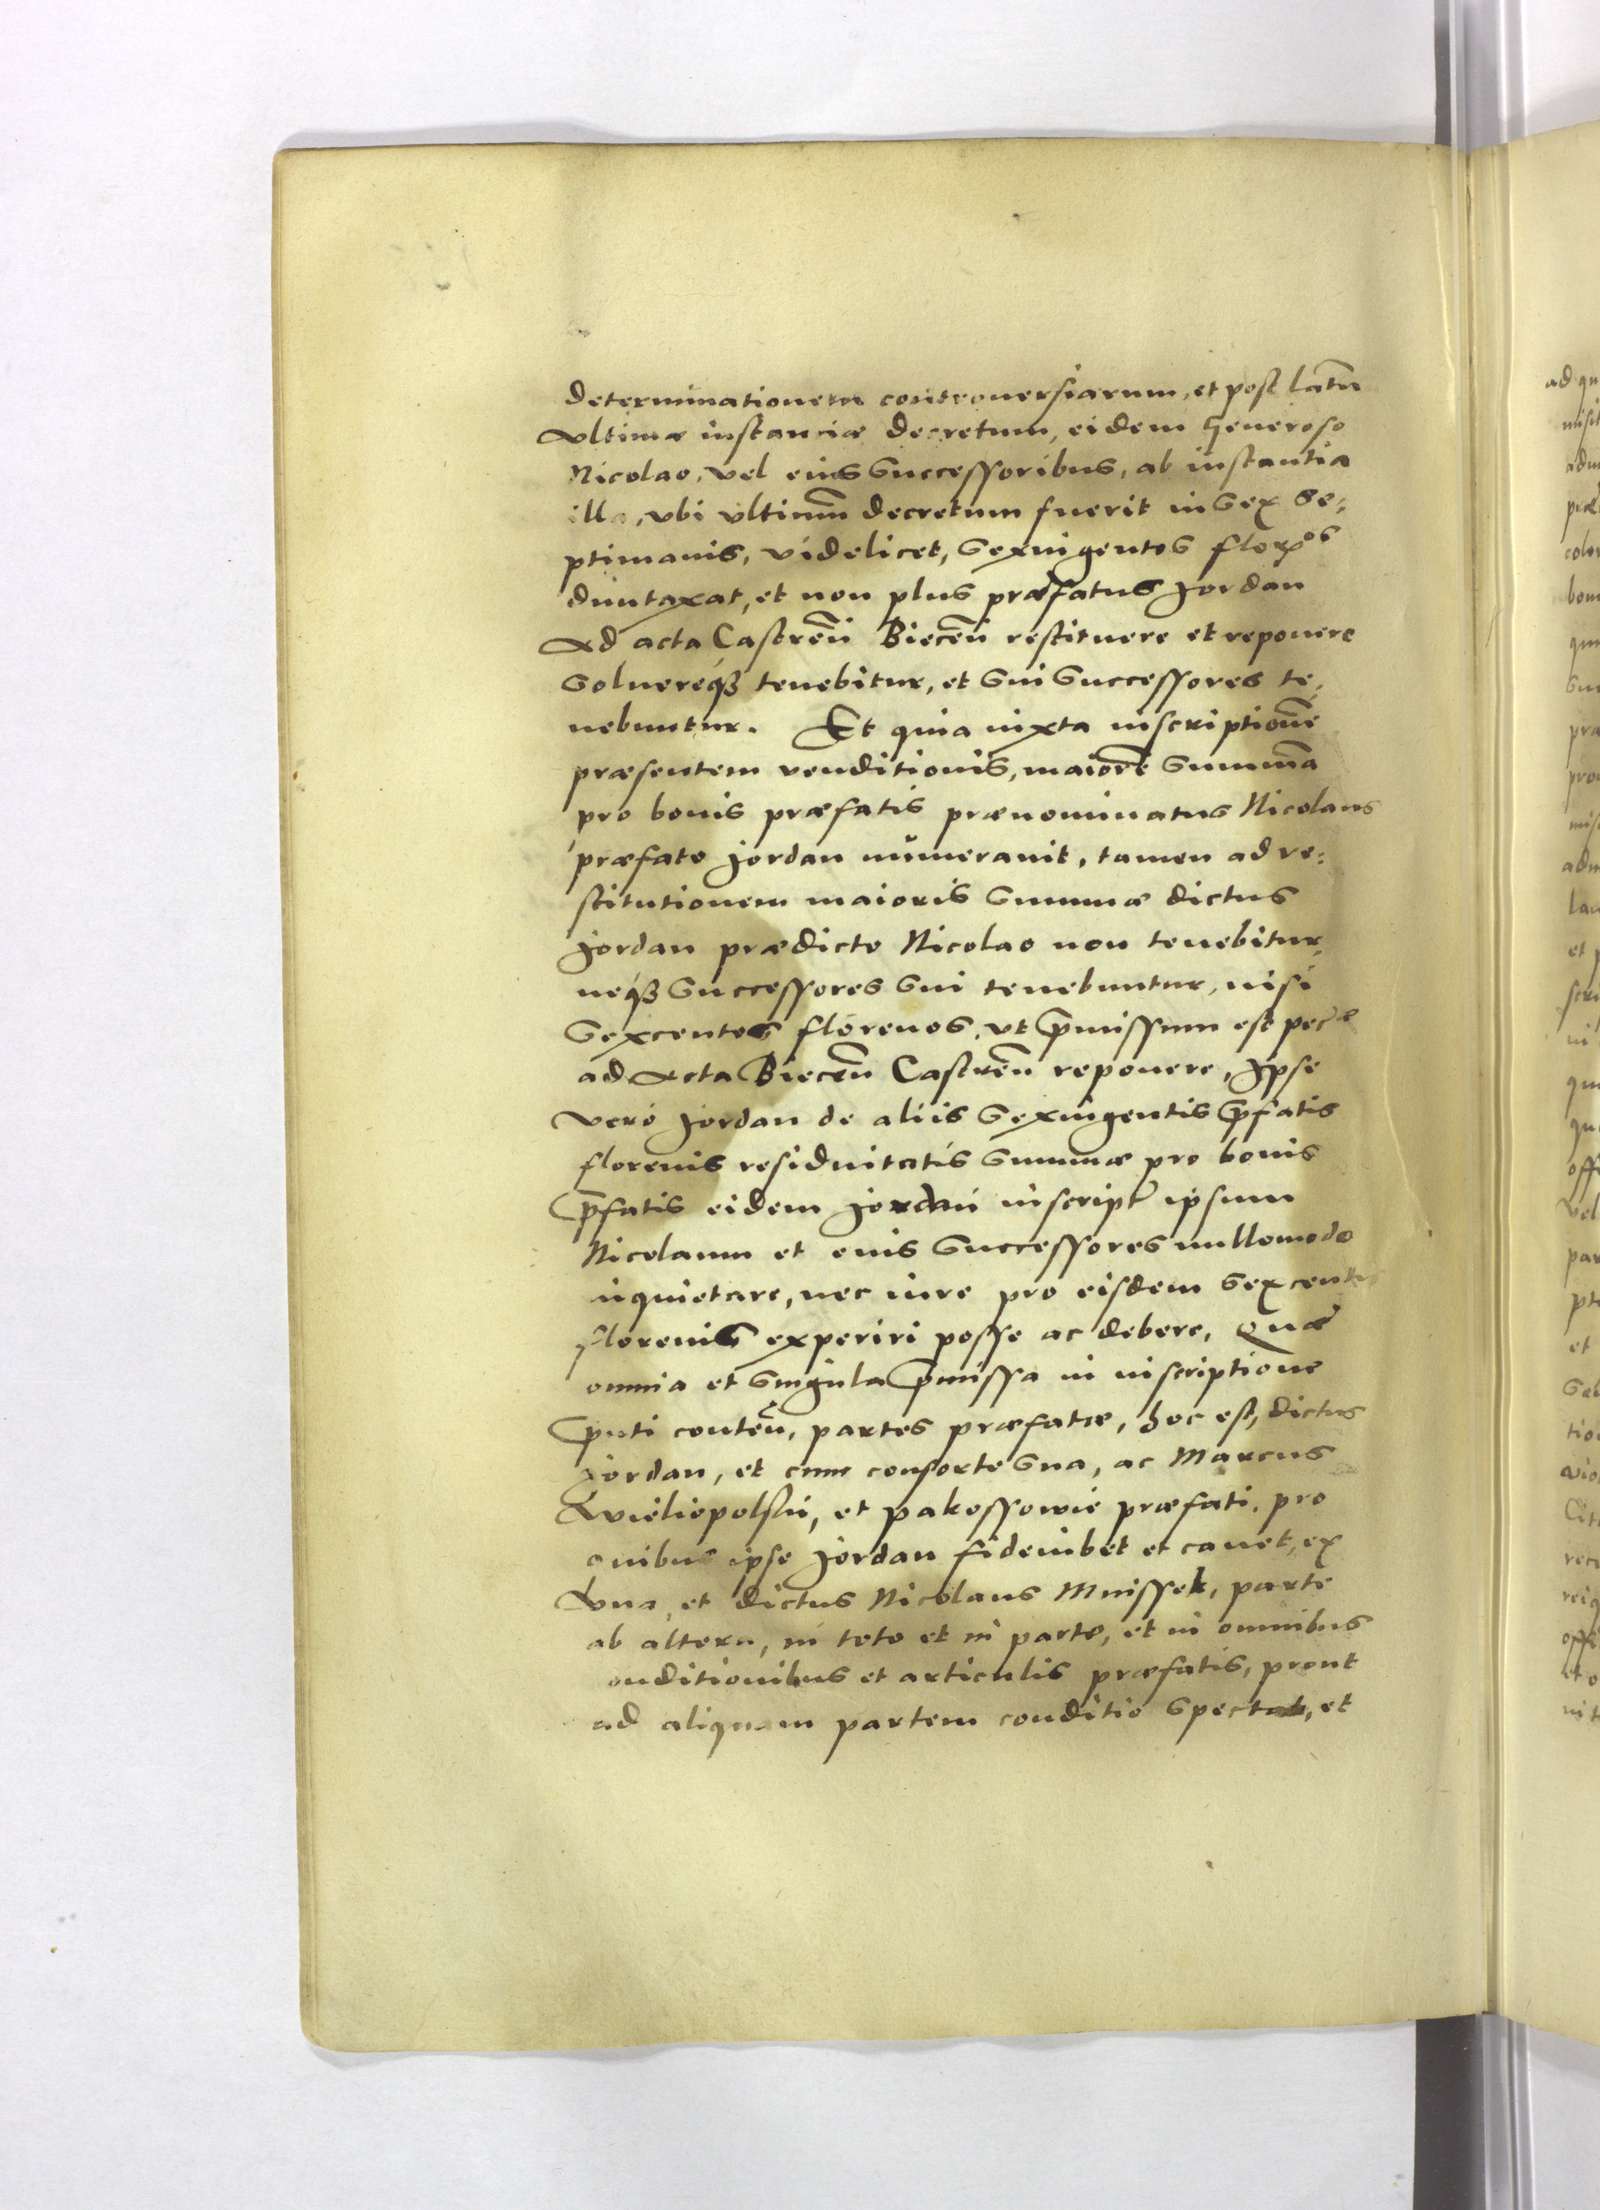 determinationem controuersiarum, et post latũ
vltimæ instanciæ decretum, eidem Generoso
Nicolao, vel eius Successoribus, ab instantia
illa, vbi vltimũ decretum fuerit in Sex Se:
ptimanis, videlicet, Sexingentos florños
duntaxat, et non plus præfatus Jordan
Ad acta Castreñ Bieceñ restituere et reponere
Soluereq3 tenebitur, et Sui Successores te:
nebuntur. Et quia iuxta inscriptionẽ
præsentem venditionis, maiorẽ Summã
pro bonis præfatis prænominatus Nicolaus
præfato Jordan numerauit, tamen ad re:
stitutionem maioris Summæ dictus
Jordan prædicto Nicolao non tenebitur,
neq3 Successores Sui tenebuntur, nisi
Sexcentos florenos, vt p̃missum est
ad Acta Bieceñ Castreñ reponere, Ipse
vero Jordan de aliis Sexingentis p̃fatis
florenis residuitatis Summæ pro bonis
p̃fatis eidem Jordan inscript̃ ipsum
Nicolaum et eius Successores nullomodo
inquietare, nec iure pro eisdem Sexcentis
florenis experiri posse ac debere, Quæ
omnia et Singula p̃missa in inscriptione
p̃nti conteñ, partes præfatæ, hoc est, dictus
Jordan, et cum consorte Sua, ac Marcus
Wieliopolski, et Pakossowie præfati, pro
quibus ipse Jordan fideiubet et cauet, ex
Vna, et dictus Nicolaus Mnissek, parte
ab altera, in toto et in parte, et in omnibus
onditionibus et articulis præfatis, prout
ad aliquam partem conditio Spectat, et